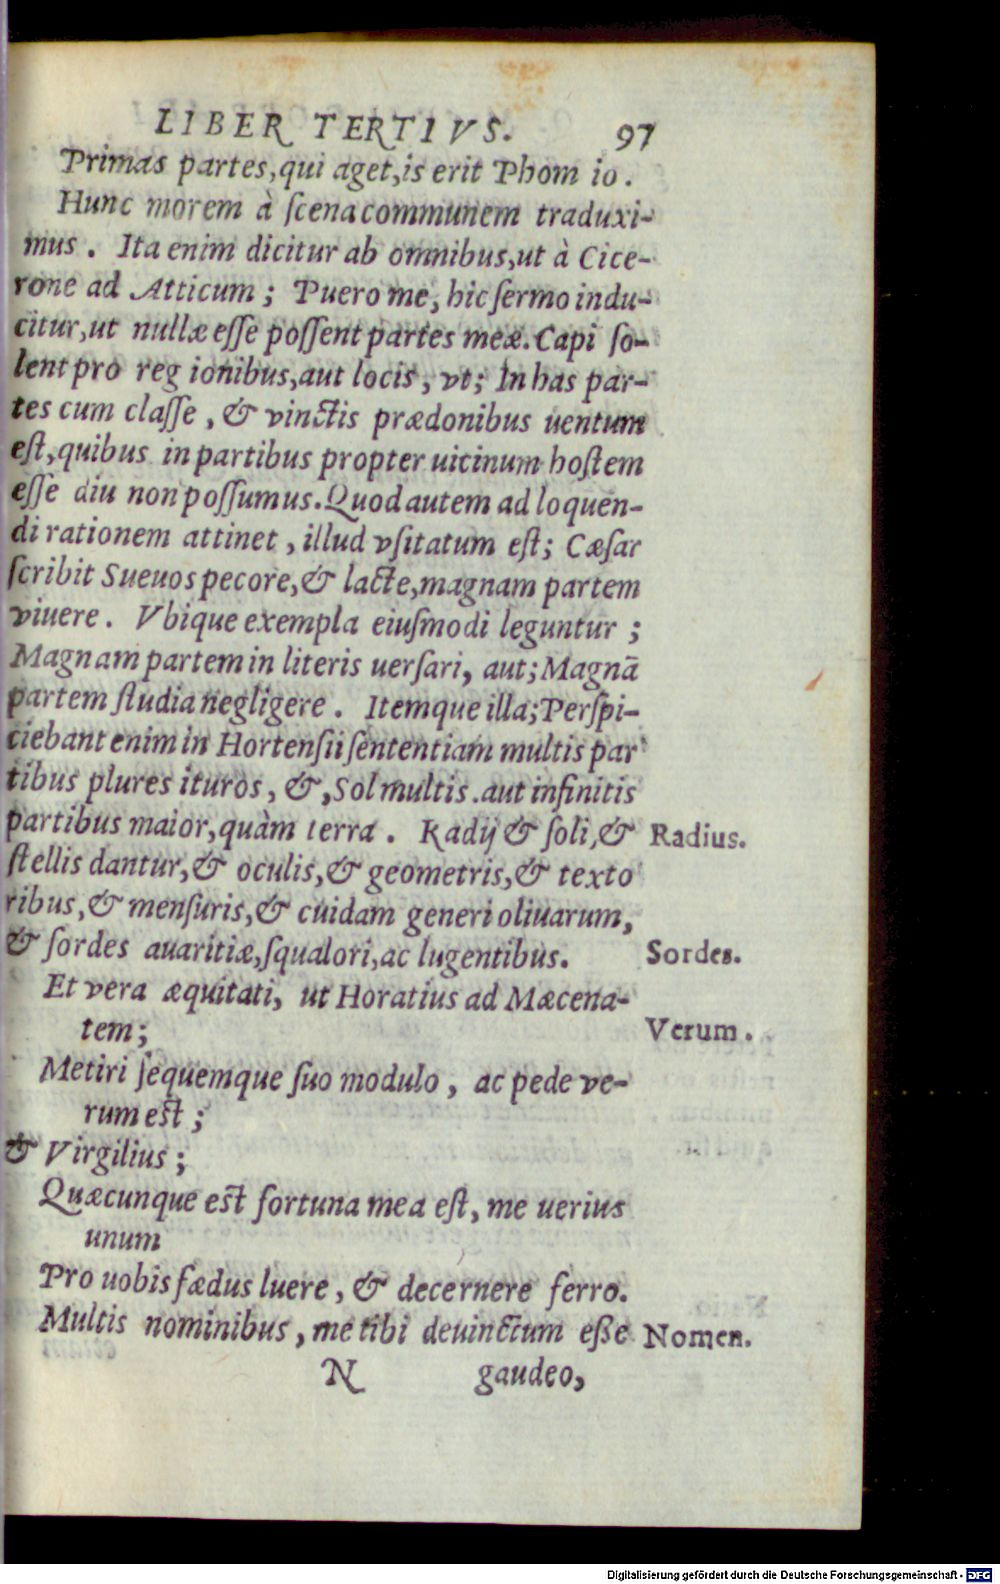 LIBER TERTIVS. 97
Primas partes, qui aget, is erit Phom io.
Hunc morem à ſcena communem traduxi-
mus. Ita enim dicitur ab omnibus, ut à Cice-
rone ad Atticum; Puero me, hic ſermo indu-
citur, ut nullæ eſſe poſſent partes meæ. Capi ſo-
lent pro reg ionibus, aut locis, vt; In has par-
tes cum claſſe, & vinctis prædonibus uentum
eſt, quibus in partibus propter uicinum hoſtem
eſſe diu non poſſumus. Quod autem ad loquen-
di rationem attinet, illud vſitatum eſt; Cæſar
ſcribit Sueuos pecore, & lacte, magnam partem
viuere. Vbique exempla eiuſmodi leguntur;
Magnam partem in literis uerſari, aut; Magnā
partem ſtudia negligere. Itemque illa; Perſpi-
ciebant enim in Hortenſii ſententiam multis par
tibus plures ituros, &, Sol multis. aut infinitis
partibus maior, quàm terra. Radij & ſoli, & Radius.
ſtellis dantur, & oculis, & geometris, & texto
ribus, & menſuris, & cuidam generi oliuarum,
& ſordes auaritiæ, ſqualori, ac lugentibus. Sordes.
Et vera æquitati, ut Horatius ad Mæcena-
tem; Verum.
Metiri ſequemque ſuo modulo, ac pede ve-
rum est;
& Virgilius;
Quæcunque est fortuna mea eſt, me uerius
unum
Pro uobis fædus luere, & decernere ferro.
Multis nominibus, me tibi deuinctum eſſe Nomen.
N gaudeo,
Digitalisierung gefördert durch die Deutsche Forschungsgemeinschaft - DFG